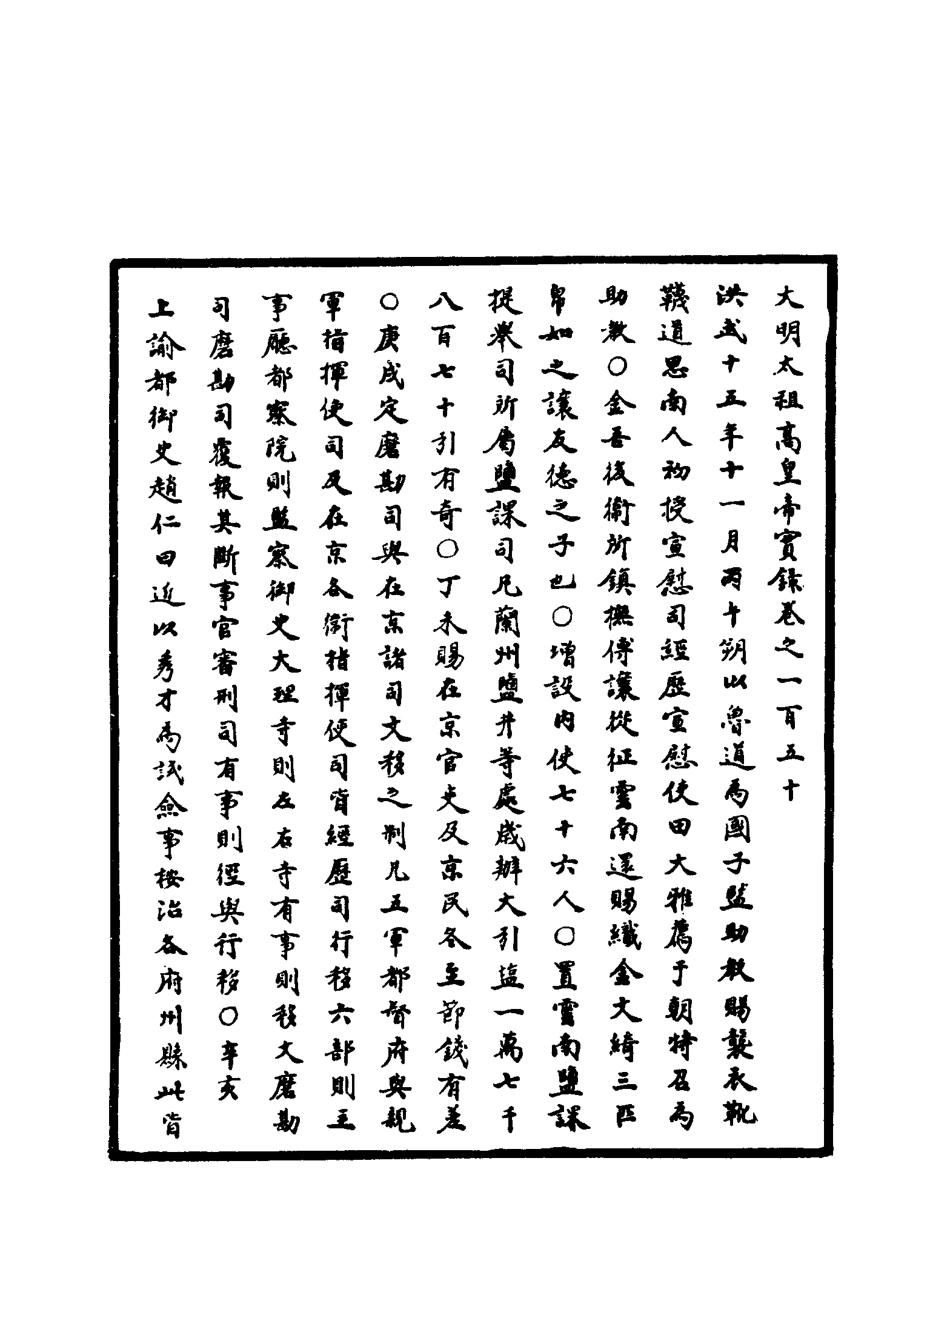 大明太祖高皇帝實錄卷之一百五十
洪武十五年十一月丙午朔以魯道為國子監助教賜襲衣靴
韈道思南人初授宣慰司經歷宣慰使田大雅薦于朝特召為
助教○金吾後衛所鎮撫傅讓從征雲南還賜織金文綺三匹
帛如之讓友德之子也○增設內使七十六人○置雲南鹽課
提舉司所屬鹽課司凡蘭州鹽井等處歲辦大引鹽一萬七千
八百七十引有奇○丁未賜在京官吏及京民冬至節錢有差
○庚戌定磨勘司與在京諸司文移之制凡五軍都督府與親
軍指揮使司及在京各衛指揮使司皆經歷司行移六部則主
事廳都察院則監察御史大理寺則左右寺有事則移文磨勘
司磨勘司覆報其斷事官審刑司有事則徑與行移○辛亥
上諭都御史趙仁曰近以秀才為試僉事按治各府州縣此皆